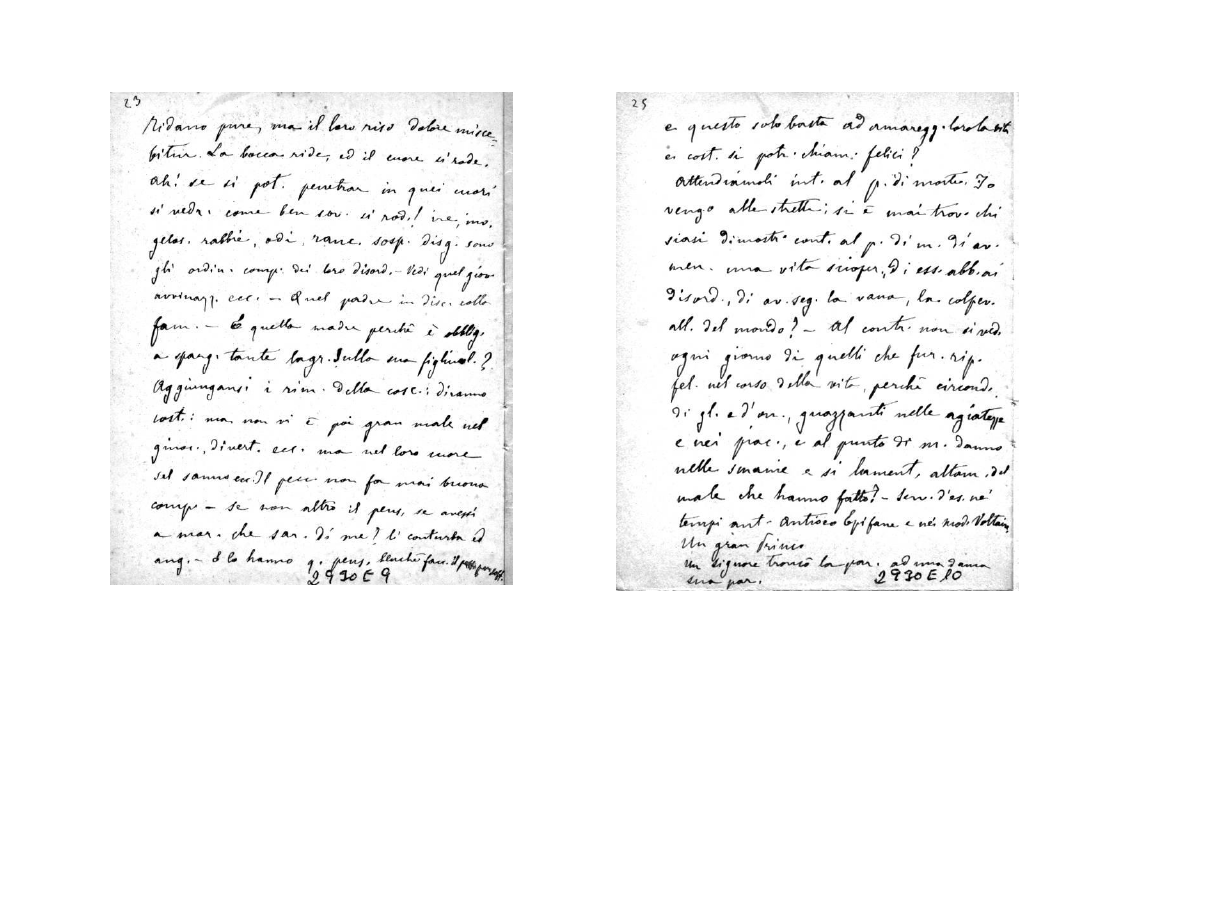 23
Ridano pure, ma il loro riso dolore misce-
bitur. La bocca ride, ed il cuore si rode.
Ah! se si pot. penetrar in quei cuori
si vedr. come ben sov. si rod.! ire, inv.
gelos. rabbie, odi, ranc. sosp. disg. sono
gli ordin. comp. dei loro disord. - Vedi quel giov.
avvinazz. ecc. - Quel padre in disc. colla
fam. - E quella madre perchè è obblig.
a sparg. tante lagr. sulla sua figliuol.?
Aggiungansi i rim. della cosc.: diranno
cost.: ma non vi è poi gran male nel
giuoc., divert. ecc. ma nel loro cuore
sel sanno ecc. Il pecc. non fa mai buona
comp. - se non altro il pens. se avessi
a mor. che sar. di me? li conturba ed
ang. - E lo hanno q. pens. benchè facc. il poss. per soff.
2930E9
25
e questo solo basta ad amaregg. loro la vita
e cost. si potr. chiam. felici?
Attendiamoli int. al p. di morte. Io
vengo alle strette: si è mai trov. chi
siasi dimostr. cont. al p. di m. di av.
men. una vita sciop., di ess. abb. ai
disord., di av. seg. la vana, la colpev.
all. del mondo? - Al contr. non si ved.
ogni giorno di quelli che fur. rip.
fel. nel corso della vita, perchè circond.
di gl. e d'on., guazzanti nelle agiatezze
e nei piac., e al punto di m. danno
nelle smanie e si lament. altam. del
male che hanno fatto? - Serv. d'es. ne'
tempi ant. Antioco Epifane e nei mod. Voltaire
Un gran Princ.
Un signore troncò la par. ad una dama
sua par.
2930E10